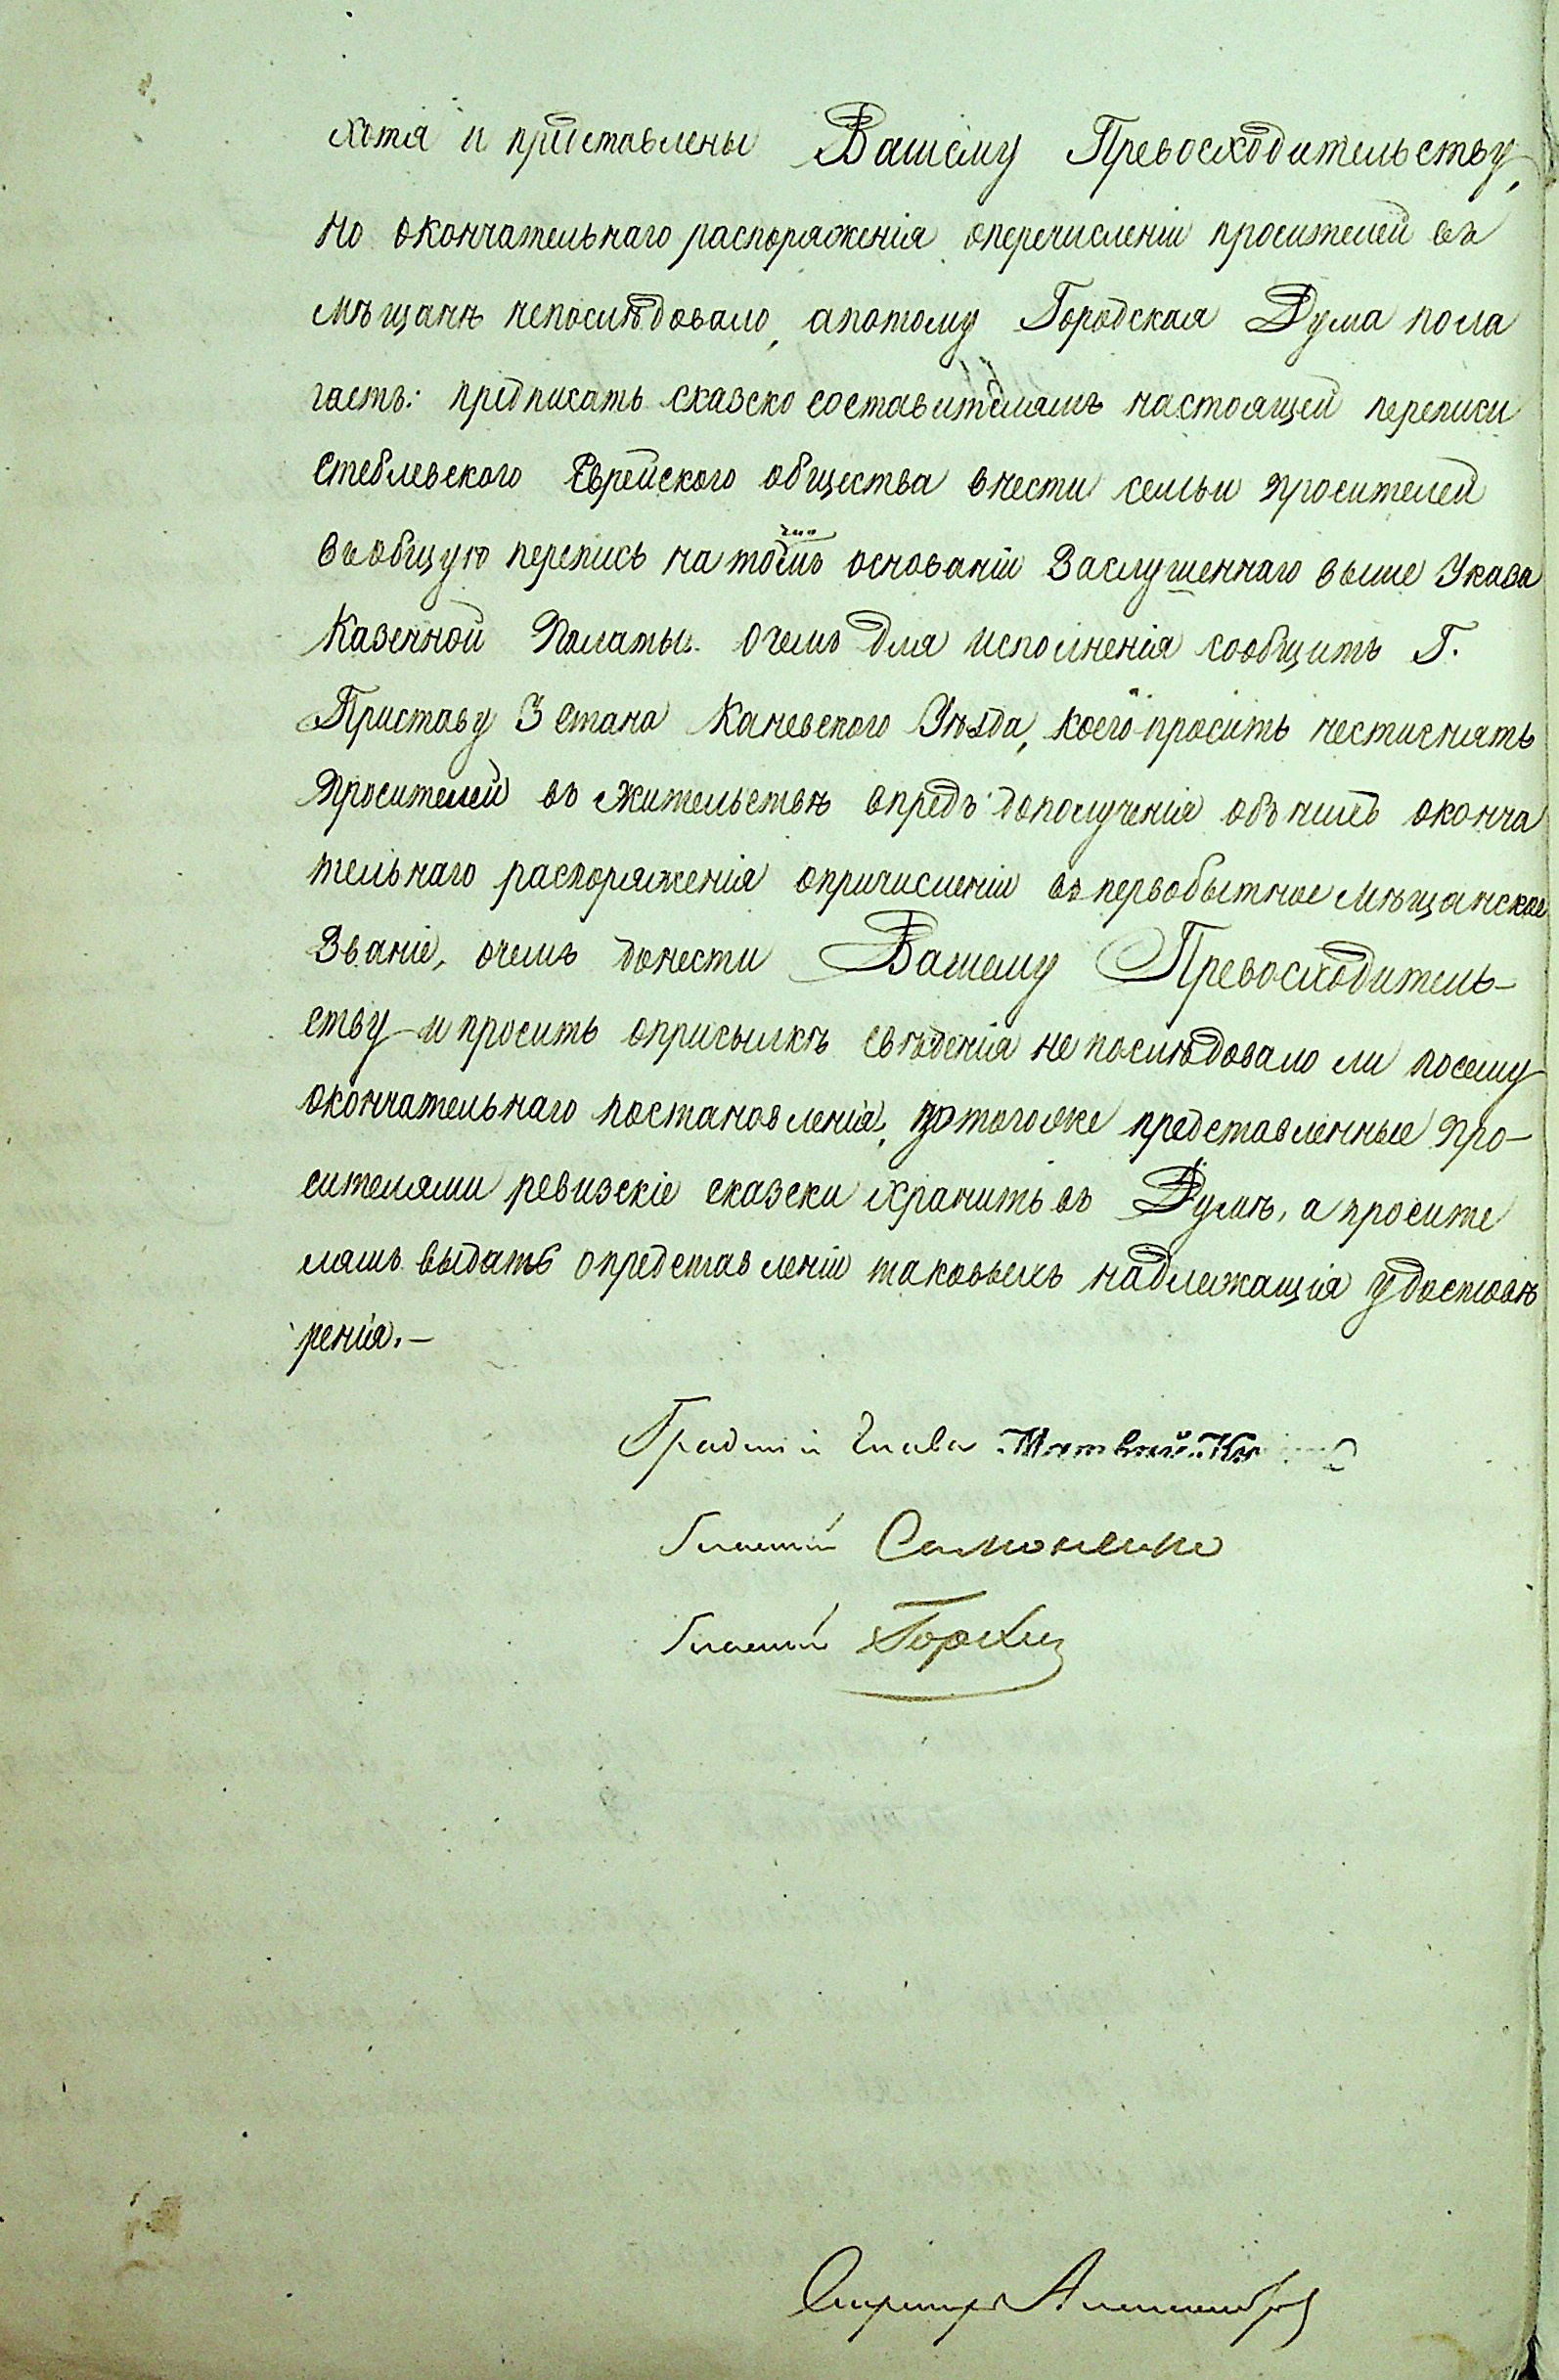 хотя и представлены Вашему Превосходительству,
но окончательнаго распоряженія оперечисленіи просителей въ
мѣщанѣ непослѣдовало, апотому Городская Дума пола
гаетъ: предписать сказско составителямъ настоящей переписи
Стеблевского Еврейского общества внести семьи просителей
въобщую перепись на томъ основаніи Заслушеннаго выше Указа
Казенной Палаты. Очемъ для исполненія сообщить Г.
Приставу 3 Стана Каневского Уѣзда, коего просить нестиснять
Просителей въ жительствѣ впредъ дополученія объ нихъ оконча
тельнаго распоряженія опричисленіи въ первобытное мѣщанское
Званіе, очемъ донести Вашему Превосходитель-
ству и просить оприсылкѣ свѣденія не послѣдовало ли посему
окончательнаго постановленія, дотогоже представленные про-
сителями ревизскіе сказски хранить въ Думѣ, а просите
лямъ выдать опредставленіи таковыхъ надлежащія удостовѣ
ренія.-
Градскій Глава Матвей
Гласный Самоненко
Гласный
Секретарь